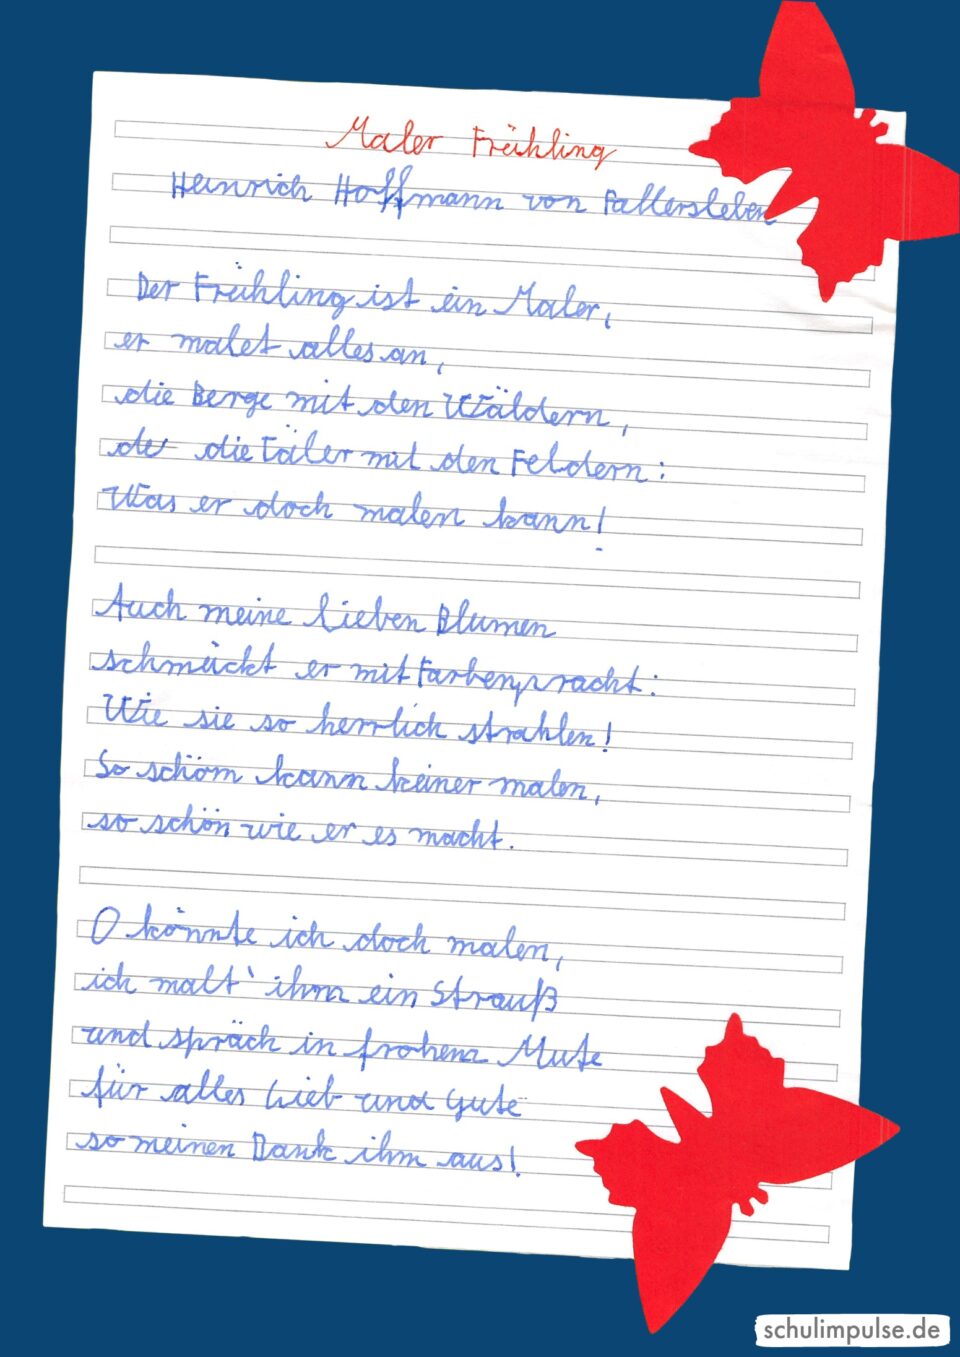 Maler Frühling
Heinrich Hoffmann von Fallersleben
Der Frühling ist ein Maler,
er malet alles an,
die Berge mit den Wäldern,
de die Täler mit den Feldern:
Was er doch malen kann!
Auch meine lieben Blumen
schmückt er mit Farbenpracht:
Wie sie so herrlich strahlen!
So schön kann keiner malen,
so schön wie er es macht.
O könnte ich doch malen,
ich malt' ihm ein Strauß
und spräch in frohem Mute
für alles Lieb und Gute
so meinen Dank ihm aus!
schulimpulse.de